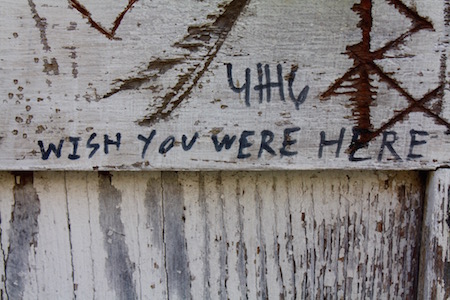 WISH YOU WERE HERE